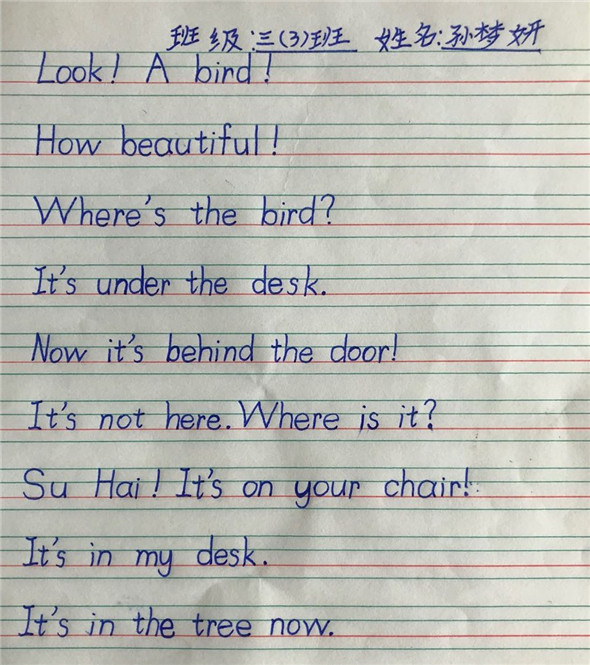 班级:三(3)班 姓名:孙梦妍
Look! A bird!
How beautiful!
Where's the bird?
It's under the desk.
Now it's behind the door!
It's not here. Where is it?
Su Hai! It's on your chair!
It's in my desk.
It's in the tree now.